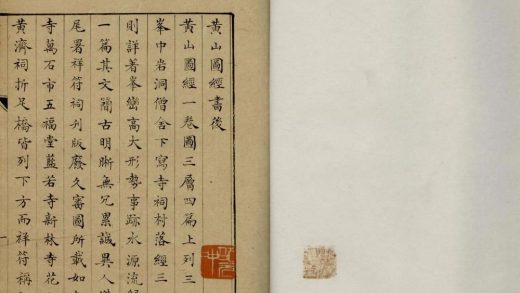 黄山圖經書後
黄山圖經一卷圖三層四篇上列三
峯中岩洞僧舍下寫寺祠村落經三
則詳著峯巒高大形勢事跡水源流
一篇其文簡古明晰無冗累誠異人
尾署祥符祠刋版廢久審圖所載如
寺萬石市五福堂藍若寺新林寺花
黄濟祠折足橋皆列下方而祥符稱